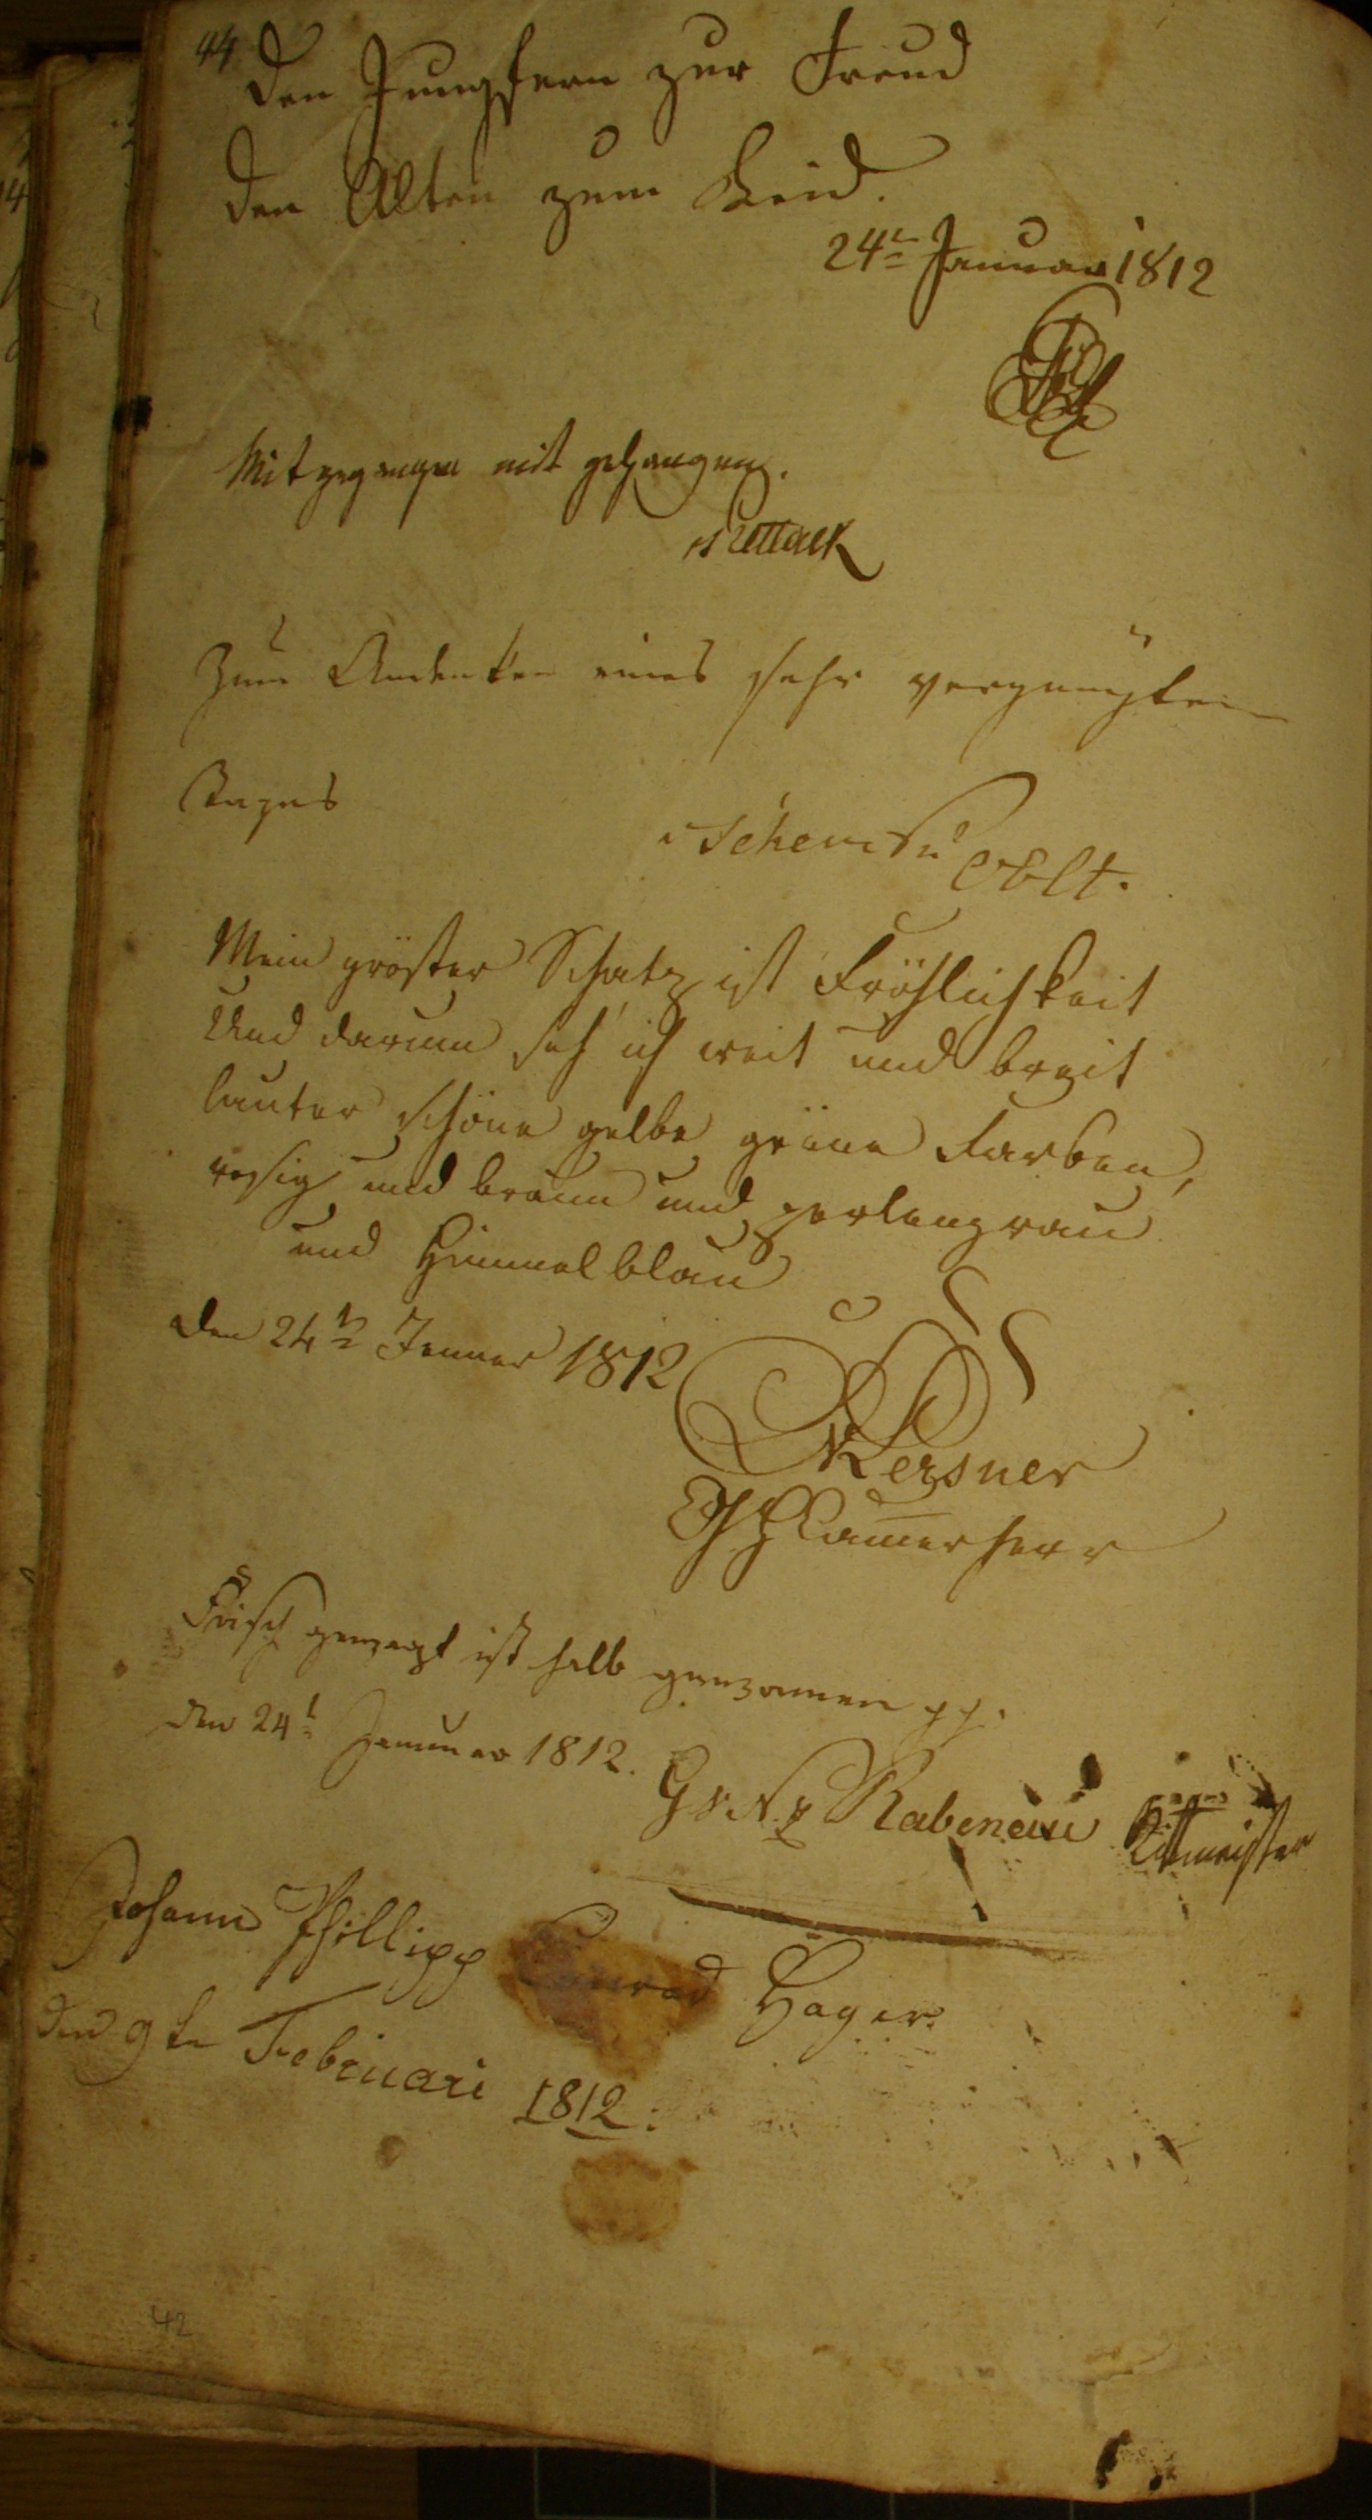 44
Den Jungfern zur Freud
den Alten zum Neid.
24t Januar 1812
Mitgegangen mit gehangen.
Zum Andenken eines sehr vergnügten
Tages
Mein gröster Schatz ist Fröhlichkeit
Und darum seh' ich weit und breit
lauter schöne gelbe grüne Farben,
rosig und braun und perlengrau
und Himmelblau
den 24t Jenner 1812
Kersner
Camerherr
Frisch gewagt ist halb gewonnen pp.
den 24t Januar 1812.
Rabenau Rittmeister
Johann Phillipp Conrad Hager.
den 9ten Februari 1812.
42